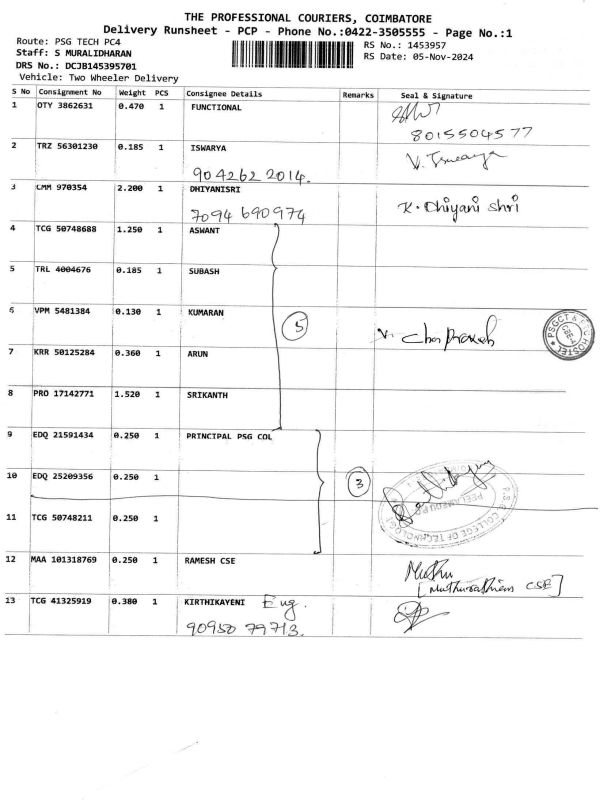 THE PROFESSIONAL COURIERS, COIMBATORE
Delivery Runsheet - PCP - Phone No.:0422-3505555 - Page No.:1
Route: PSG TECH PC4
RS No.: 1453957
Staff: S MURALIDHARAN
RS Date: 05-Nov-2024
DRS No.: DCJB145395701
Vehicle: Two Wheeler Delivery
S No Consignment No Weight PCS Consignee Details Remarks Seal & Signature
1 OTY 3862631 0.470 1 FUNCTIONAL
8015504577
2 TRZ 56301230 0.185 1 ISWARYA
9042622014.
3 CMM 970354 2.200 1 DHIYANISRI K. Dhiyani Shri
7094 690974
4 TCG 50748688 1.250 1 ASWANT
5 TRL 4004676 0.185 1 SUBASH
6 VPM 5481384 0.130 1 KUMARAN
5
7 KRR 50125284 0.360 1 ARUN
8 PRO 17142771 1.520 1 SRIKANTH
9 EDQ 21591434 0.250 1 PRINCIPAL PSG COL
10 EDQ 25209356 0.250 1
3
P.S.G. COLLEGE OF TECHNOLOGY
11 TCG 50748211 0.250 1
12 MAA 101318769 0.250 1 RAMESH CSE
13 TCG 41325919 0.380 1 KIRTHIKAYENI Eng.
90950 79713.